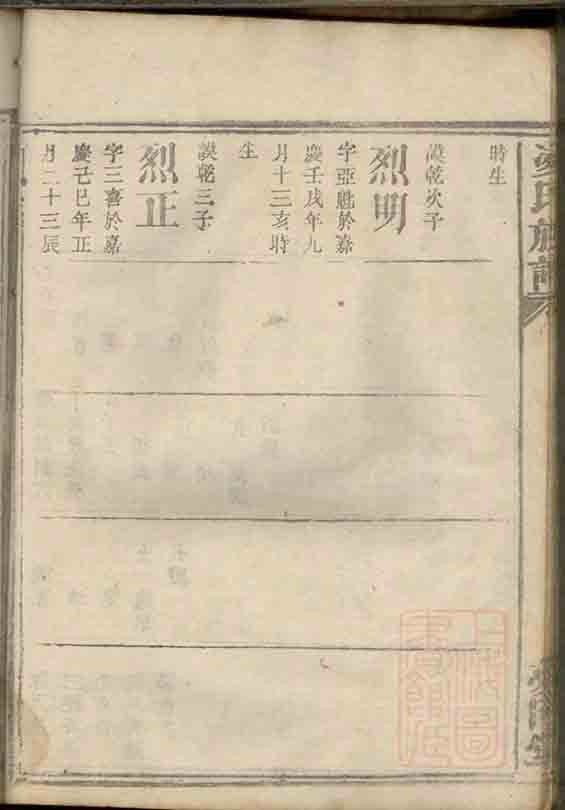 氏族譜
時生
謨乾次子
烈明
於嘉
慶壬戌年九
月十三亥時
生
謨乾三子
烈正
字三喜於嘉
慶己巳年正
月二十三辰
上海圖
書館藏